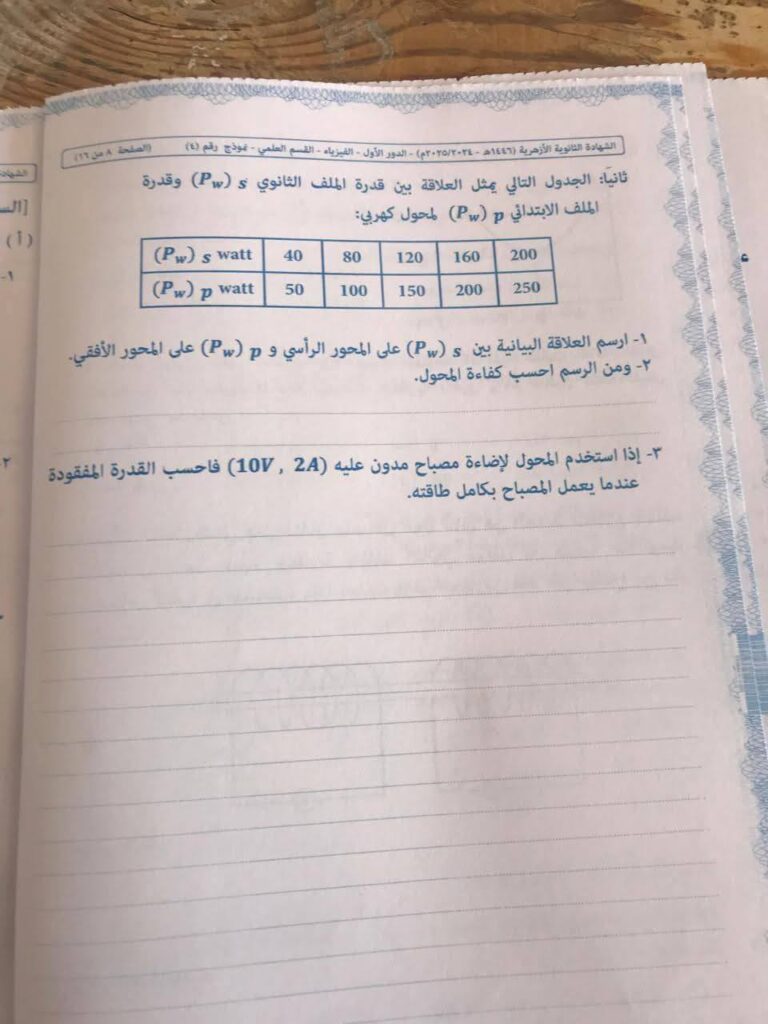 الشهادة الثانوية الأزهرية (١٤٤٦هـ - ٢٠٢٥/٢٠٢٤م) - الدور الأول - الفيزياء - القسم العلمي - نموذج رقم (٤) (الصفحة ٨ من ١٦)
ثانيًا: الجدول التالي يمثل العلاقة بين قدرة الملف الثانوي (Pw) s وقدرة
الملف الابتدائي (Pw) p لمحول كهربي:
(Pw) s watt 40 80 120 160 200
(Pw) p watt 50 100 150 200 250
١- ارسم العلاقة البيانية بين (Pw) s على المحور الرأسي و (Pw) p على المحور الأفقي.
٢- ومن الرسم احسب كفاءة المحول.
٣- إذا استخدم المحول لإضاءة مصباح مدون عليه (10V , 2A) فاحسب القدرة المفقودة
عندما يعمل المصباح بكامل طاقته.
(أ)
١-
٢